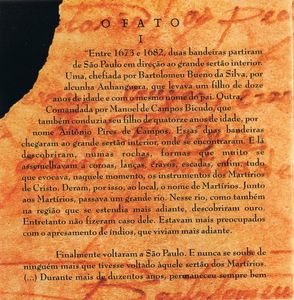 O FATO
I
"Entre 1673 e 1682, duas bandeiras partiram
de São Paulo em direção ao grande sertão interior.
Uma, chefiada por Bartolomeu Bueno da Silva, por
alcunha Anhanguera, que levava um filho de doze
anos de idade e com o mesmo nome do pai. Outra,
Comandada por Manoel de Campos Bicudo, que
também conduzia seu filho de quatorze anos de idade, por
nome Antônio Pires de Campos. Essas duas bandeiras
chegaram ao grande sertão interior, onde se encontraram. E lá
descobriram, numas rochas, formas que muito se
assemelhavam à coroas, lanças, cravos, escadas, enfim, tudo
que evocava, naquele momento, os instrumentos dos Martírios
de Cristo. Deram, por isso, ao local, o nome de Martírios. Junto
aos Martírios, passava um grande rio. Nesse rio, como também
na região que se estendia mais adiante, descobriram ouro.
Entretanto não fizeram caso dele. Estavam mais preocupados
com o apresamento de índios, que viviam mais adiante.
Finalmente voltaram a São Paulo. E nunca se soube de
ninguém mais que tivesse voltado àquele sertão dos Martírios.
(...) Durante mais de duzentos anos, permaneceu sempre bem